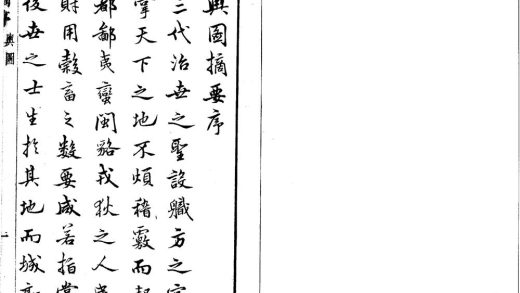 輿圖摘要序
三代治世之聖設職方之官
掌天下之地不煩稽覈而
都鄙夷蠻閩貉戎狄之人
財用穀畜之数要咸若指掌
後世之士生於其地而城
輿圖
一